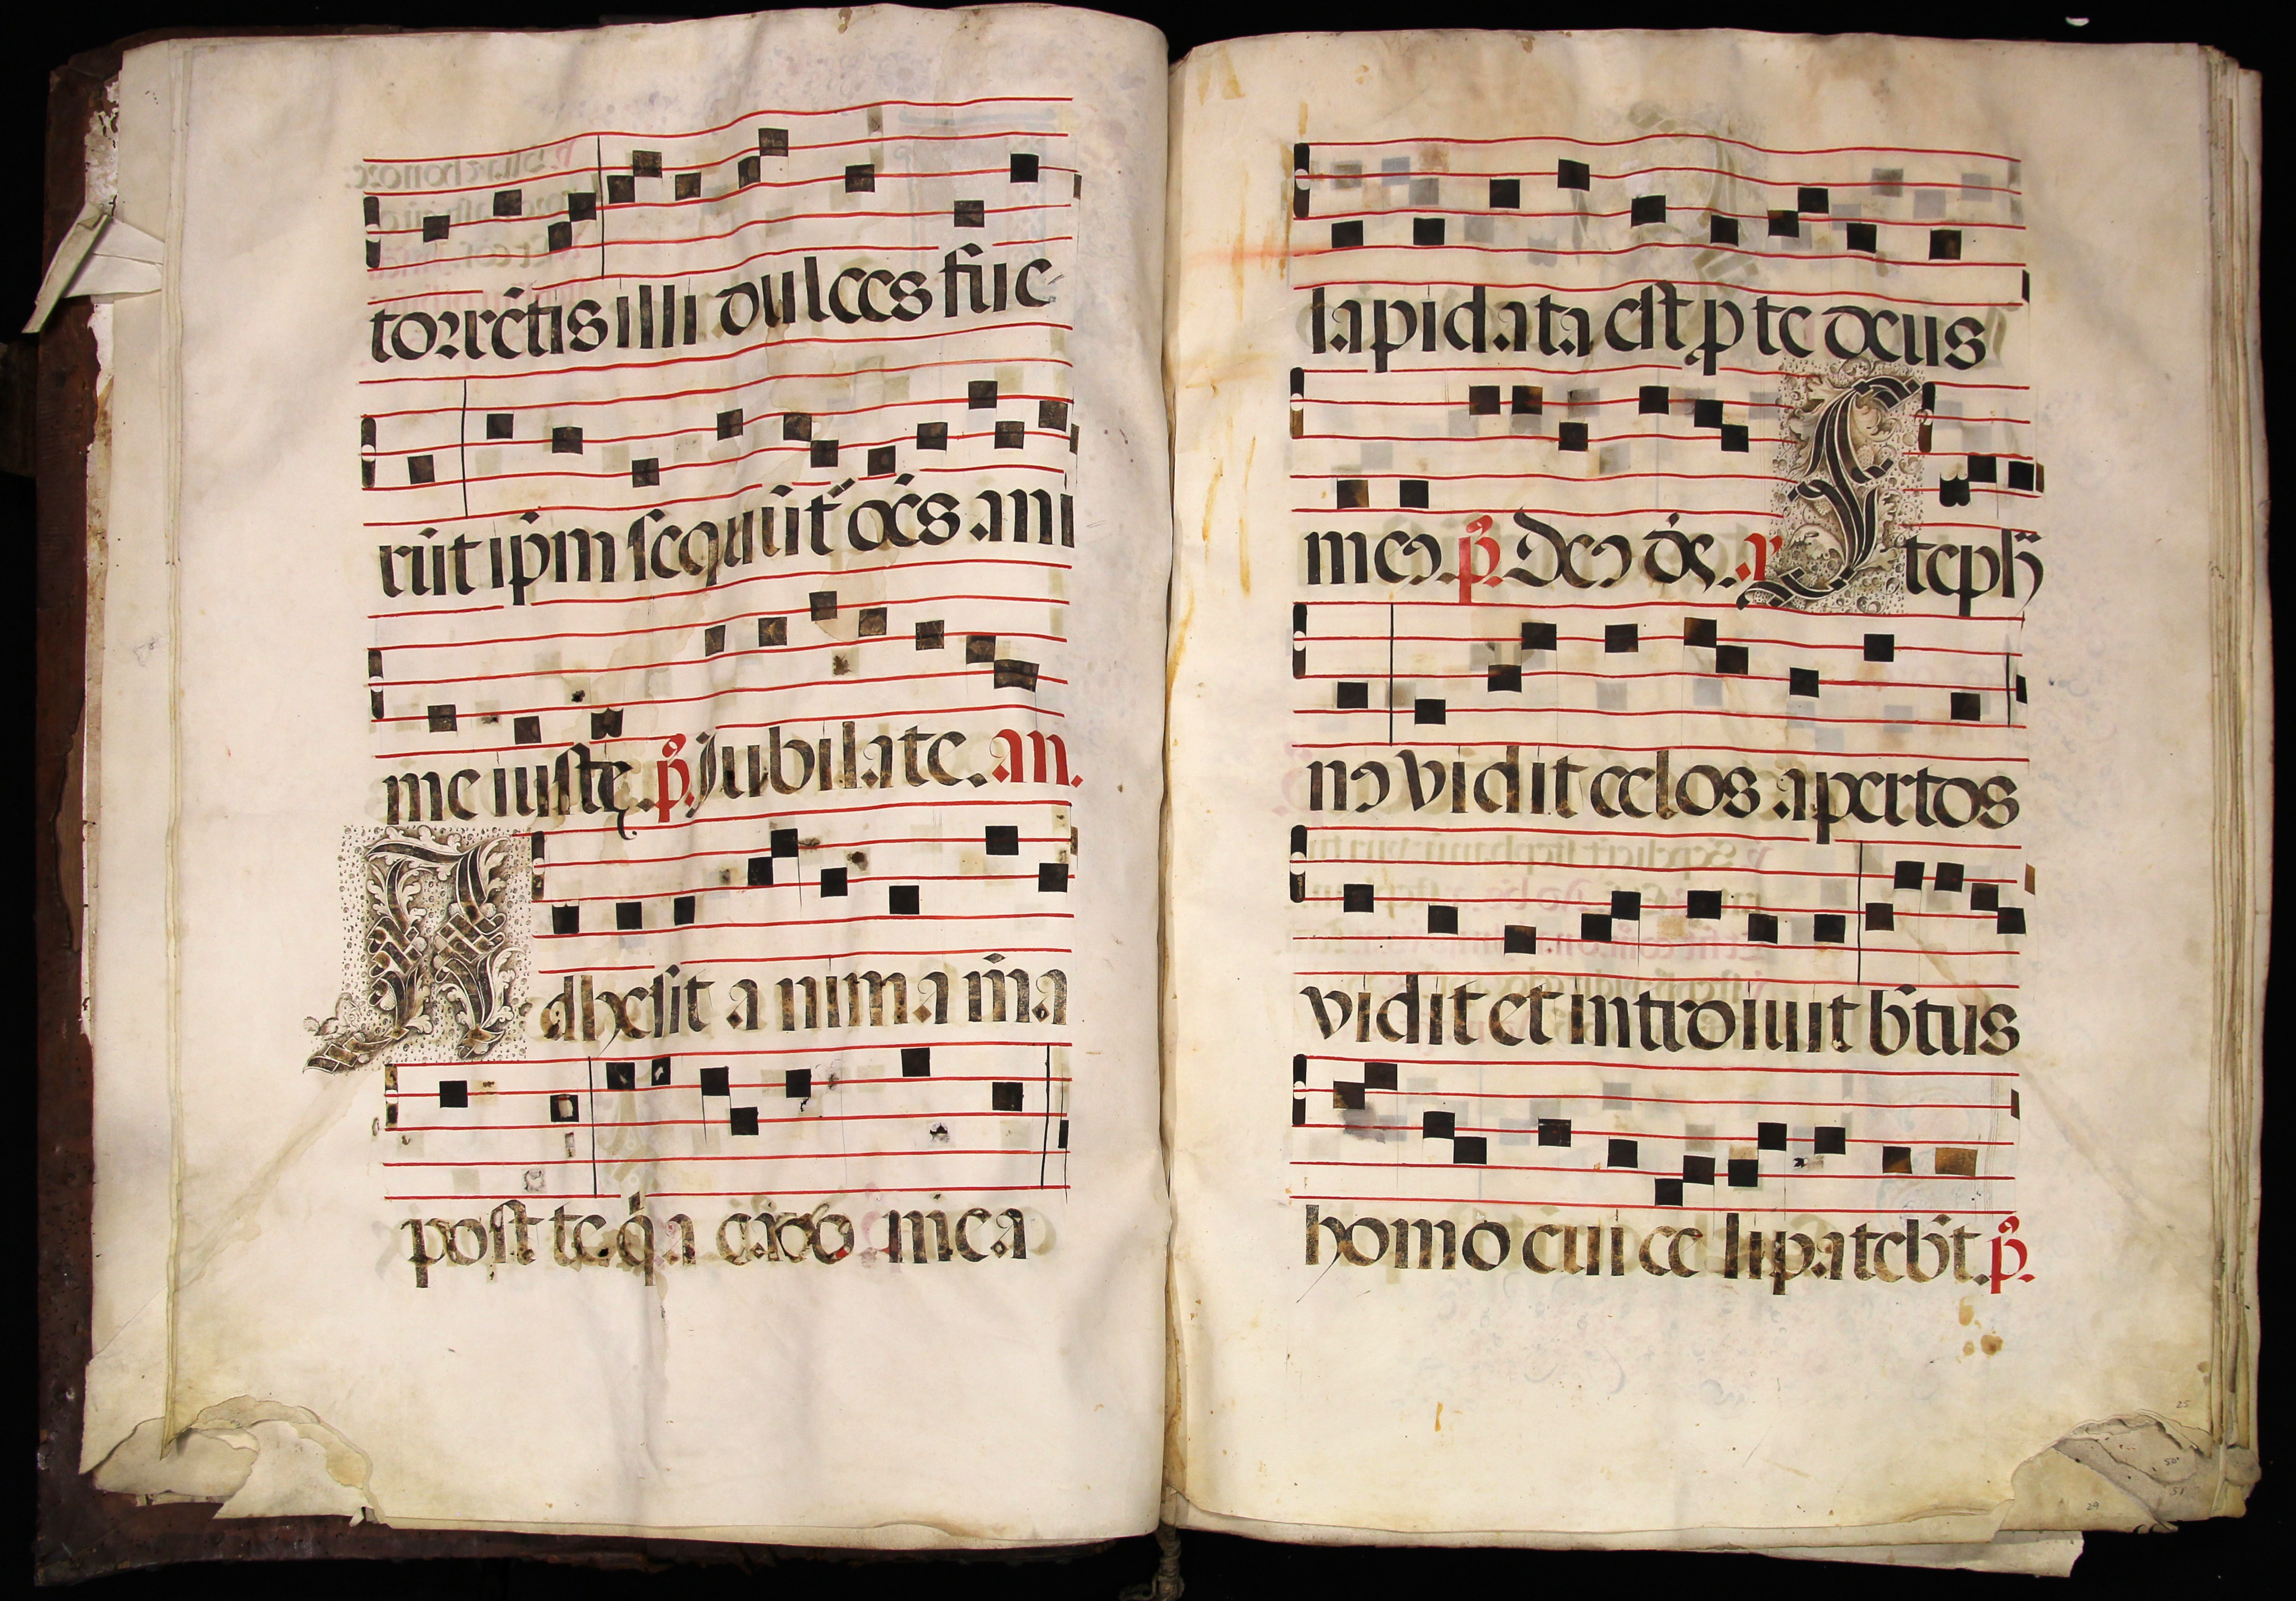 torrētis illi dulces fue
rūt ip̄m sequūt̄ oēs ani
me iustę. p̄. Jubilate. an.
Adhesit anima m̄a
post te q̄a caro mea
lapidata est p te deus
meus. p̄. Deus ds̄. a
Steph̄
nus vidit celos apertos
vidit et introiuit b̄tus
homo cui celi pateb̄t. p̄.